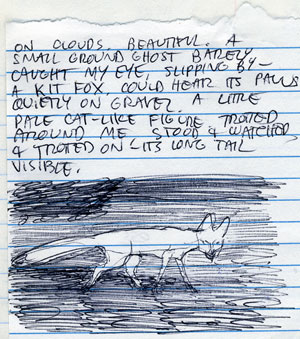 ON CLOUDS. BEAUTIFUL. A
SMALL GROUND GHOST BARELY
CAUGHT MY EYE, SLIPPING BY—
A KIT FOX, COULD HEAR ITS PAWS
QUIETLY ON GRAVEL. A LITTLE
PALE CAT-LIKE FIGURE TROTED
AROUND ME STOOD & WATCHED
& TROTED ON & ITS LONG TAIL
VISIBLE.